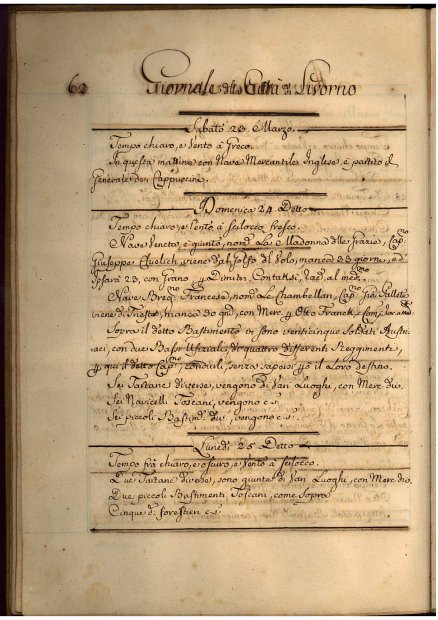 62 Giornale della Città di Livorno
Sabato 23. Marzo.
Tempo chiaro, e Vento à Greco.
In questa mattina con Nave Mercantile Inglese è partito il
Generale de Cappuccini.
Domenica 24 Detto
Tempo chiaro, e Vento à Scilocco fresco.
Nave Veneta, è giunto, nom.ª La Madonna delle Grazie, Cap.no
Giuseppe viene dal Golfo di Volo, manca 33 giorni, e di
23, con Grano, p Dimitri racc. al med.mo
Nave Fransese, nom.ª Le Chambellan, Cap.no Gio:
viene di Trieste, manca 30 gni, con Merc. p Otto Franck, e Com.
Sopra il detto Bastimento vi sono venticinque Soldati Austri=
aci, con due Bassi Ufiziali di quattro differenti Reggimenti,
p qui il detto Cap.no condusse, senza sapersi p il Loro destino.
Sei Tartane diverse, vengono di Varj Luoghi, con Merc. div.e
Sei Navicelli Toscani, vengono c.s.
Sei piccoli Bastim.ti div.i, vengono c.s.
Lunedì 25 Detto
Tempo frà chiaro, e oscuro, e Vento à Scilocco.
Due Tartane diverse, sono giunte di Varj Luoghi, con Merc. div.e
Due piccoli Bastimenti Toscani, come sopra
Cinque di forestieri c.s.